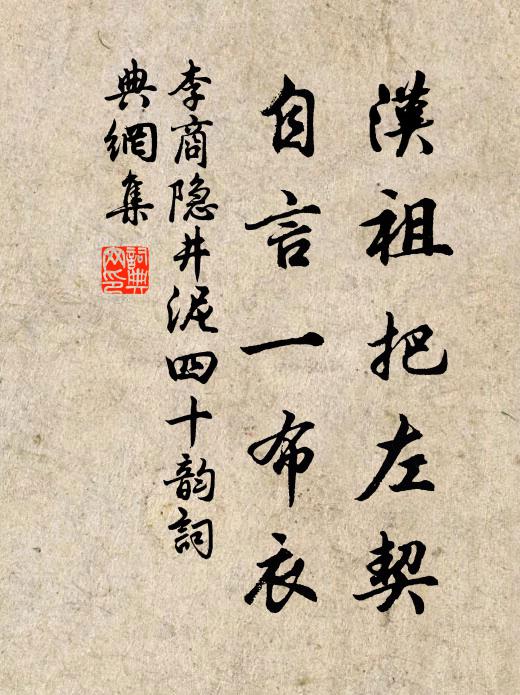 漢祖把左契
自言一布衣
李商隐井泥四十韵詞
典網集
詞典
网印